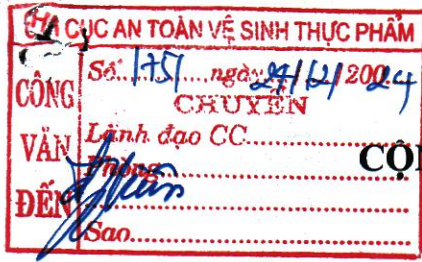 CHI CỤC AN TOÀN VỆ SINH THỰC PHẨM
CÔNG VĂN ĐẾN
Số.......ngày 27/12/2024
CHUYỂN
Lãnh đạo CC..................
Phòng..................
Sao..................
CỘN